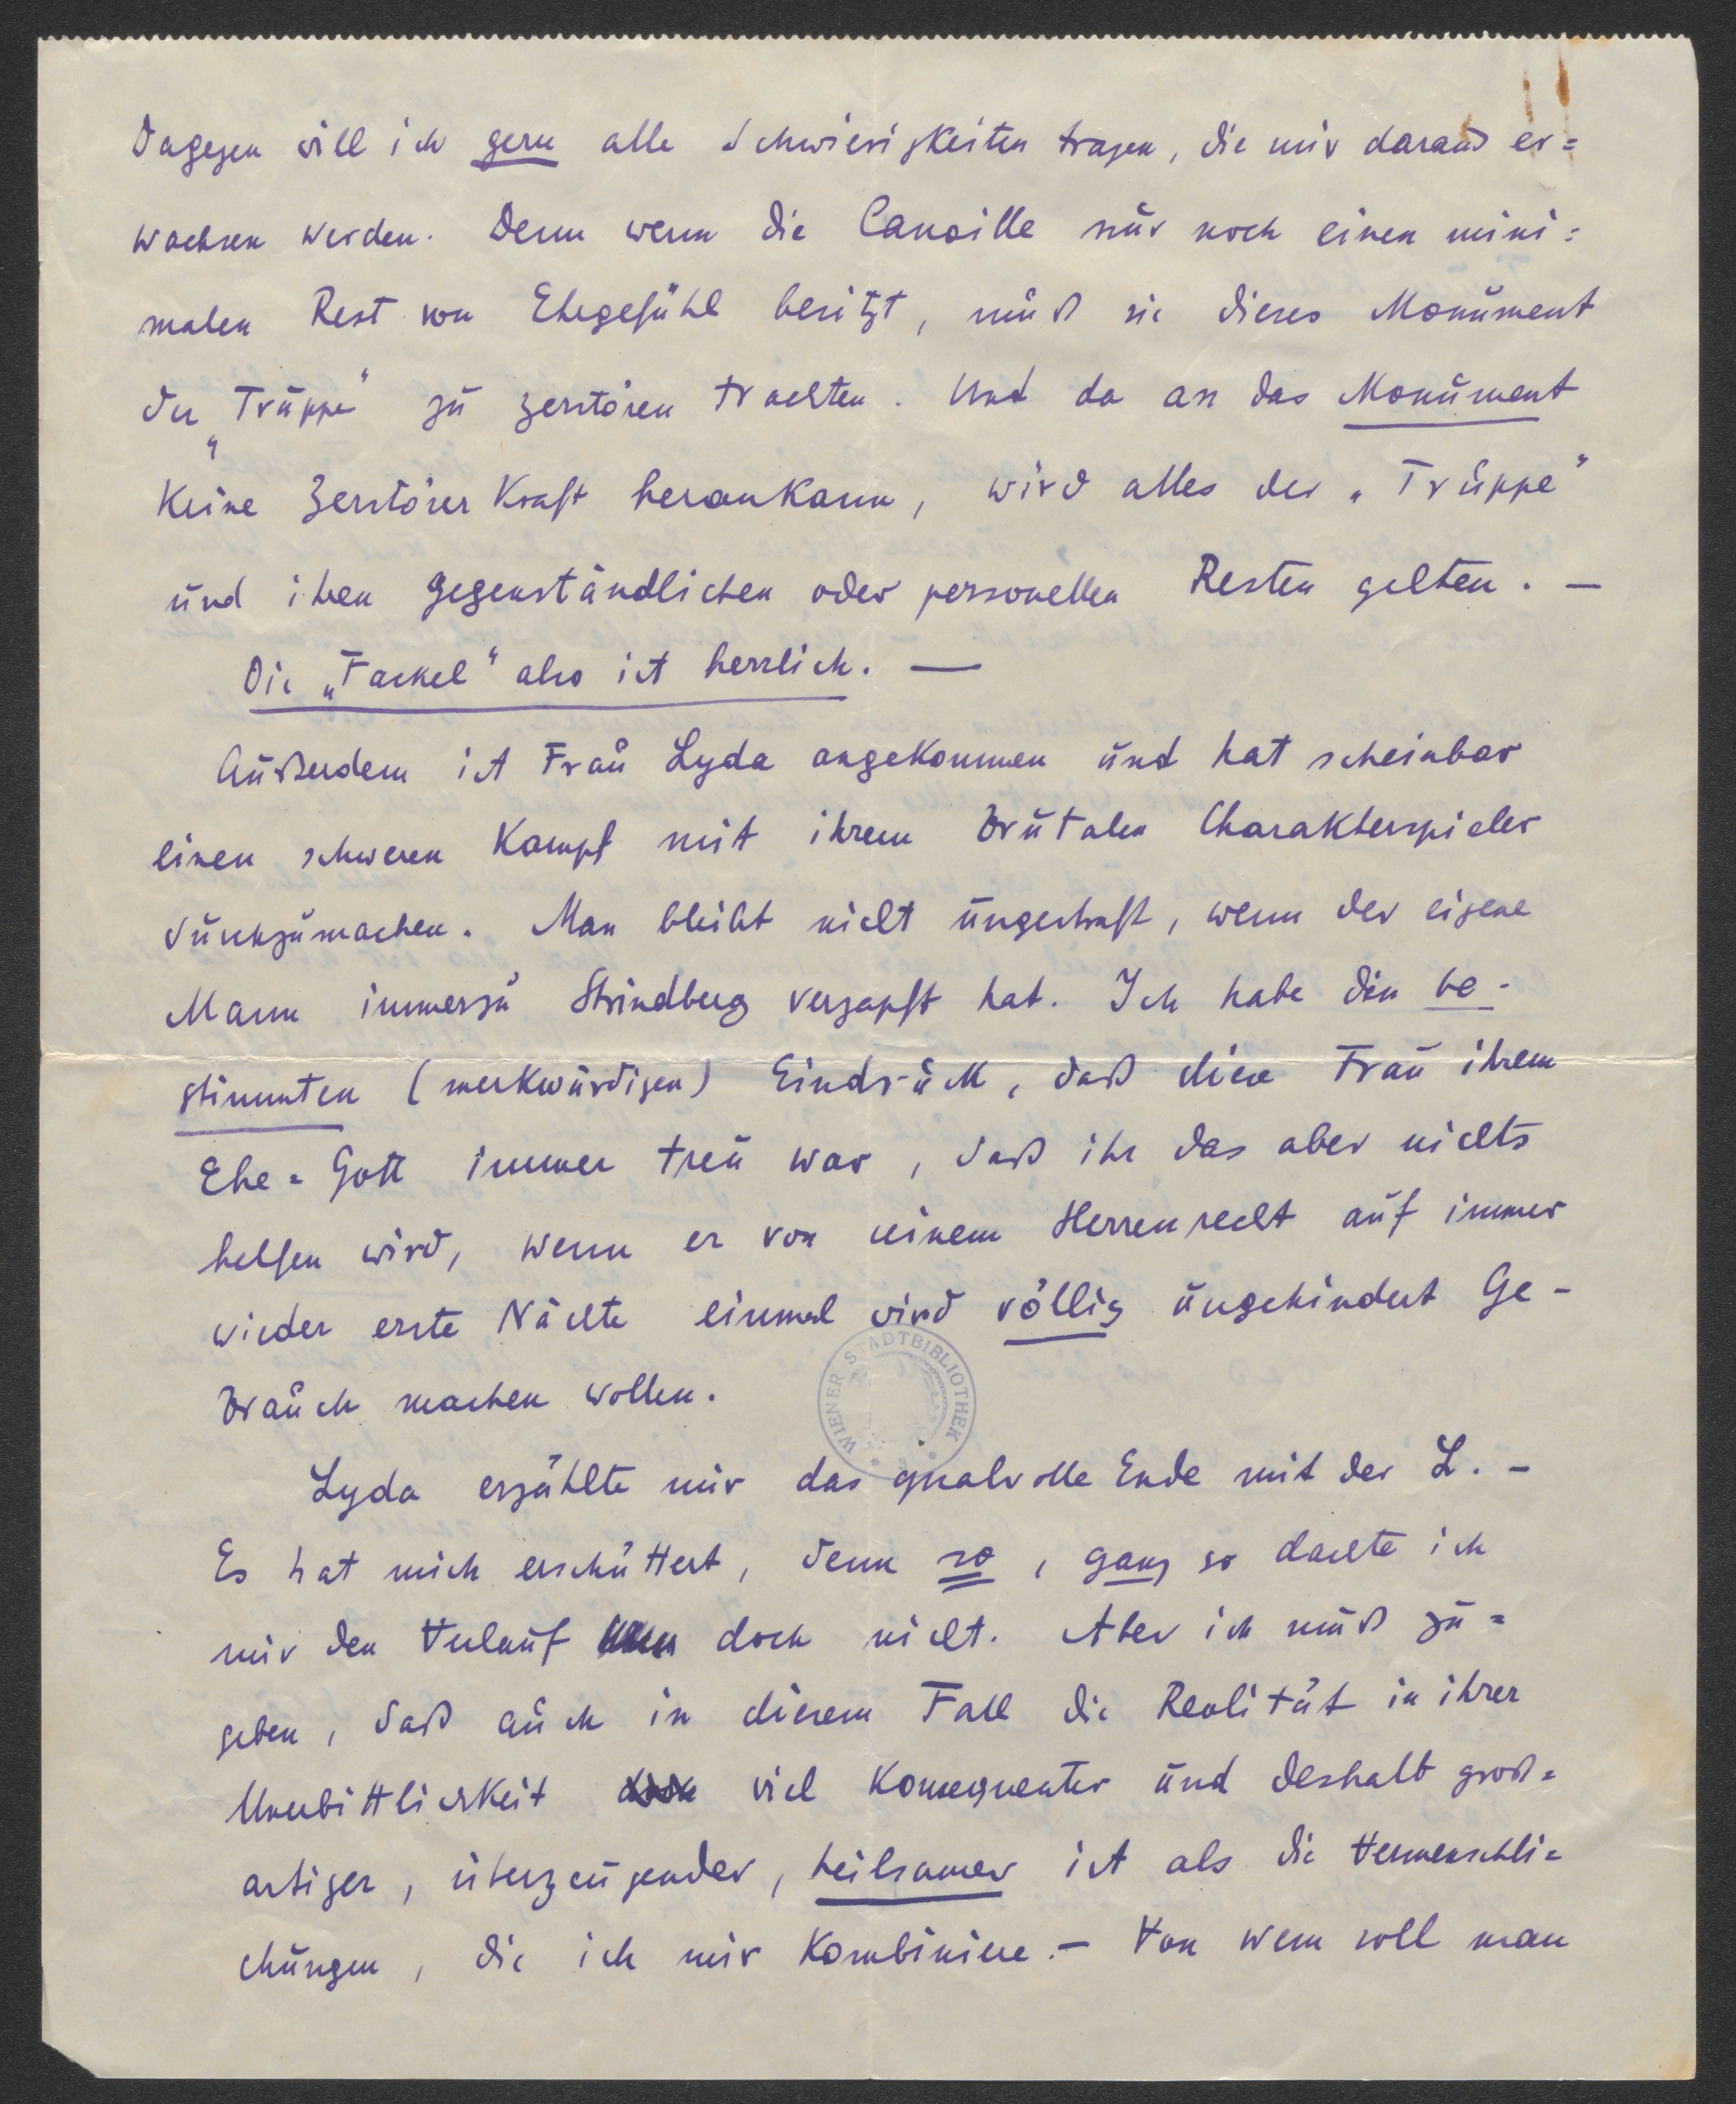 Dagegen will ich gern alle Schwierigkeiten tragen, die mir daraus er=
wachsen werden. Denn wenn die Canaille nur noch einen mini=
malen Rest von Ehrgefühl besitzt, muß sie dieses Monument
der „Truppe“ zu zerstören trachten. Und da an das Monument
keine Zerstörer Kraft herankann, wird alles der „Truppe“
und ihren gegenständlichen oder personellen Resten gelten. —
Die „Fackel“ also ist herrlich. —
Außerdem ist Frau Lyda angekommen und hat scheinbar
einen schweren Kampf mit ihrem brutalen Charakterspieler
durchzumachen. Man bleibt nicht ungestraft, wenn der eigene
Mann immerzu Strindberg verzapft hat. Ich habe den be-
stimmten (merkwürdigen) Eindruck, daß diese Frau ihrem
Ehe=Gott immer treu war, daß ihr das aber nichts
helfen wird, wenn er von seinem Herrenrecht auf immer
wieder erste Nächte einmal wird völlig ungehindert Ge-
brauch machen wollen.
WIENER STADTBIBLIOTHEK
Lyda erzählte mir das qualvolle Ende mit der L. –
Es hat mich erschüttert, denn so, ganz so dachte ich
mir den Verlauf doch nicht. Aber ich muß zu=
geben, daß auch in diesem Fall die Realität in ihrer
Unerbittlichkeit viel konsequenter und deshalb groß=
artiger, überzeugender, heilsamer ist als die Vermenschli=
chungen, die ich mir kombiniere. – Von wem soll man